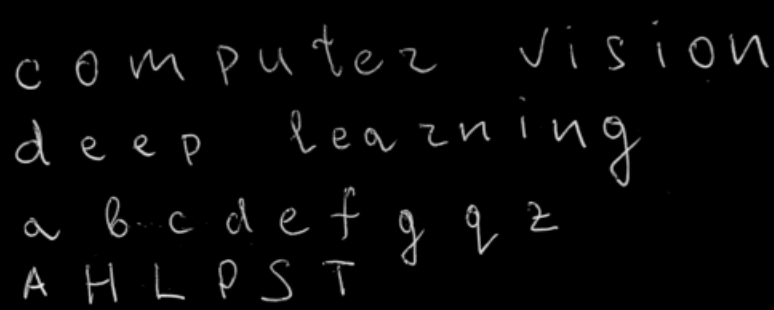 computer vision
deep learning
a b c d e f g q z
A H L P S T